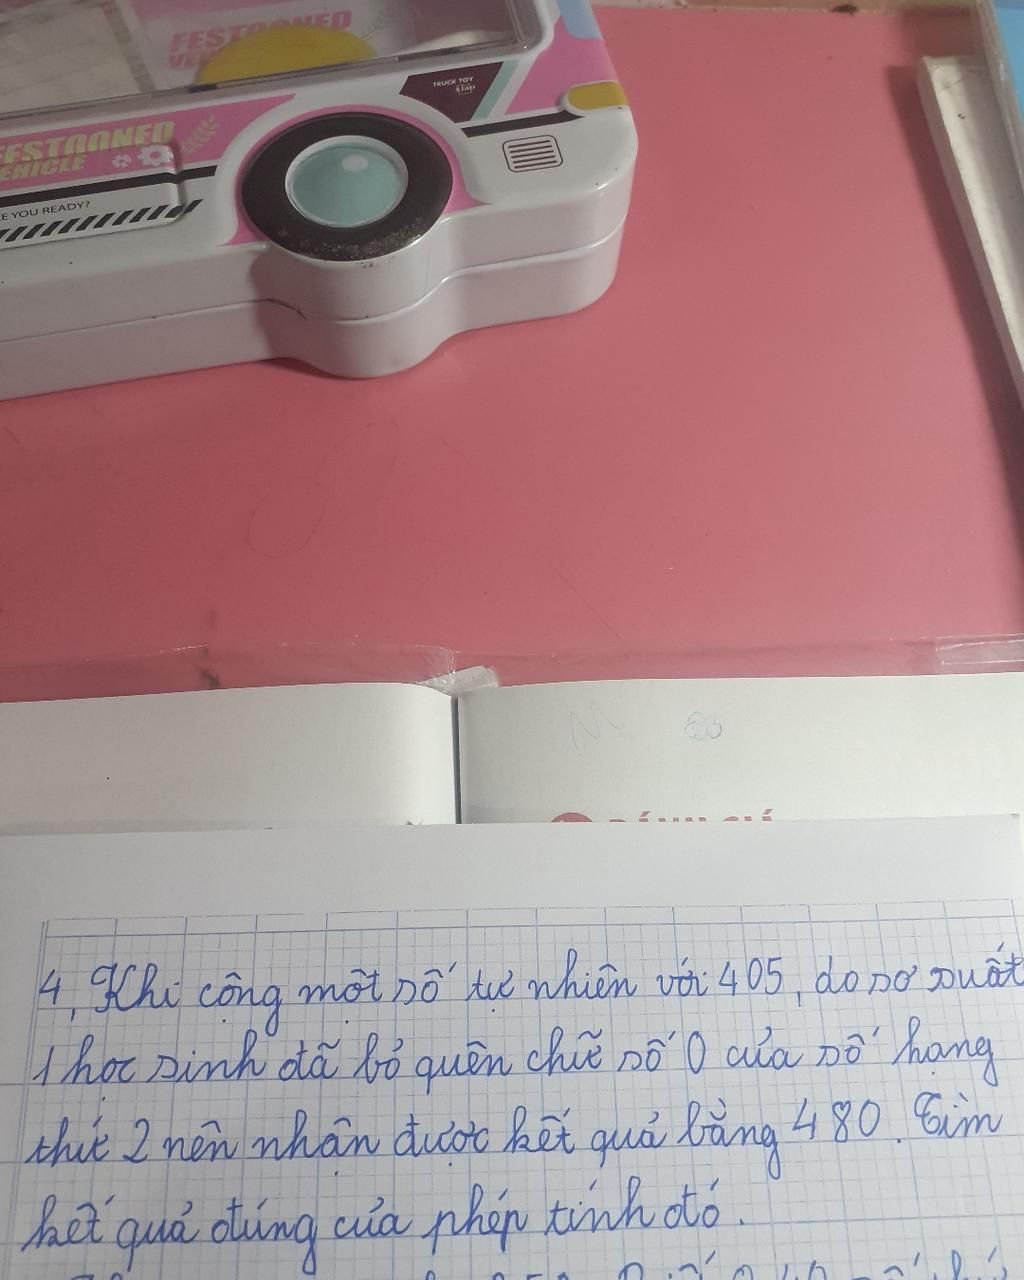 FESTOONED
TRUCK TOY
FESTOONED
VEHICLE
E YOU READY?
ĐÁNH GIÁ
4, Khi cộng một số tự nhiên với 405, do sơ suất
1 học sinh đã bỏ quên chữ số 0 của số hạng
thứ 2 nên nhận được kết quả bằng 480. Tìm
kết quả đúng của phép tính đó.